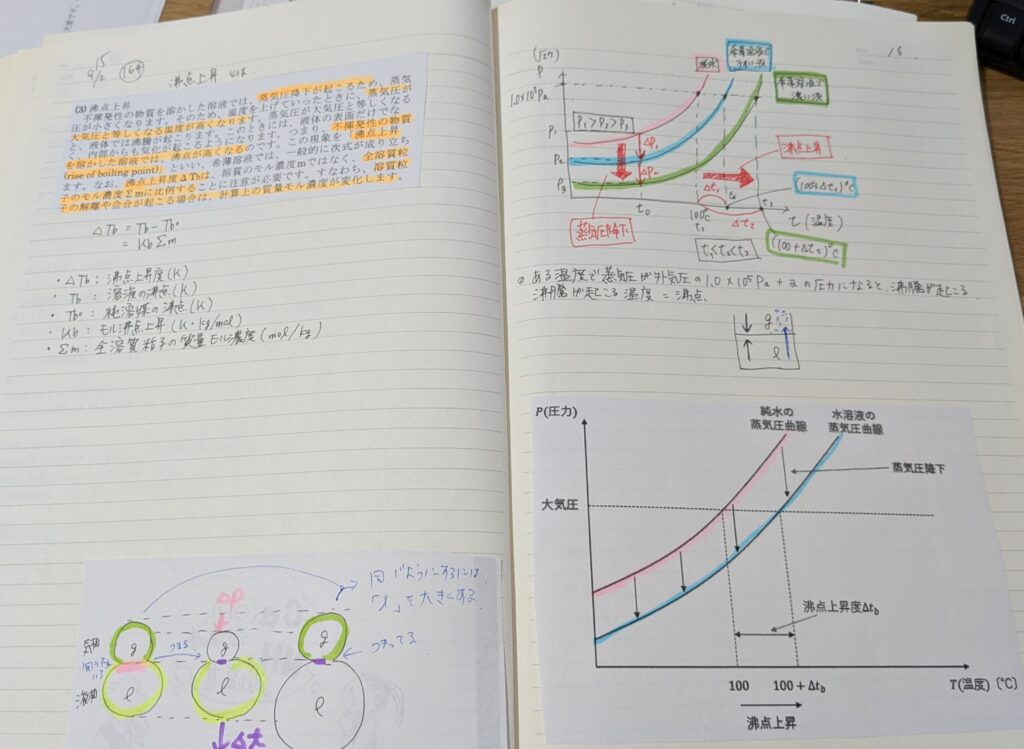 15
9/2
164
沸点上昇 とは
(3) 沸点上昇
不揮発性の物質を溶かした溶液では、蒸気圧降下が起こるため、蒸気
圧が小さくなります。そのため、温度を上げていったときに、蒸気圧が
大気圧と等しくなる温度が高くなります。蒸気圧が大気圧と等しくなる
と、液体では沸騰が起こります。このときには、液体の表面だけでな
く、内部からも気化が起こるようになります。つまり、不揮発性の物質
を溶かした溶液では、沸点が高くなるのです。この現象を「沸点上昇
(rise of boiling point)」といい、希薄溶液では、一般的に次式が成り立ち
ます。なお、沸点上昇度ΔTbは、溶質のモル濃度mではなく、全溶質粒
子のモル濃度Σmに比例することに注意が必要です。すなわち、溶質粒
子の解離や会合が起こる場合は、計算上の質量モル濃度が変化します。
ΔTb = Tb - Tb°
= Kb Σm
・ΔTb : 沸点上昇度 (K)
・Tb : 溶液の沸点 (K)
・Tb° : 純溶媒の沸点 (K)
・Kb : モル沸点上昇 (K・kg/mol)
・Σm : 全溶質粒子の質量モル濃度 (mol/kg)
同じようにするには
「l」を大きくする
ΔP
気相
g
つまる
g
g
つまってる
液相
l
l
l
Δt
15
(圧力)
P
純水
希薄溶液で
うすい液
希薄溶液で
濃い液
1.0×10⁵Pa
P₁>P₂>P₃
P₁
P₂
P₃
ΔP₁
ΔP₂
沸点上昇
蒸気圧降下
t₀
100℃
t₁
Δt₁
t₂
t₃
Δt₂
t (温度)
(100+Δt₁)℃
(100+Δt₂)℃
t₁<t₂<t₃
ある温度で蒸気圧が外気圧の1.0×10⁵Pa+αの圧力になると、沸騰が起こる
沸騰が起こる温度=沸点
g
l
P(圧力)
純水の
蒸気圧曲線
水溶液の
蒸気圧曲線
蒸気圧降下
大気圧
沸点上昇度Δtb
100
100 + Δtb
T(温度) (℃)
沸点上昇
Ctrl